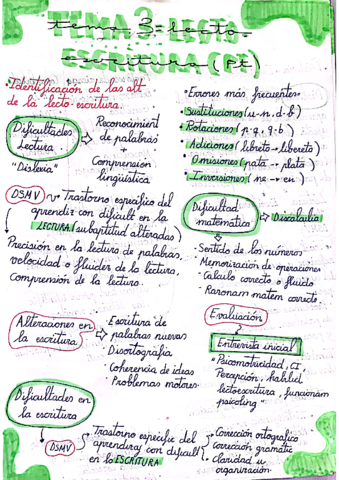 TEMA 3= LECTO-
ESCRITURA (PT)
tema 3= lecto-
escritura (PT)
•Identificación de las alt
de la lecto-escritura.
Dificultades
Lectura
"Dislexia"
Reconocimient
de palabras
+
Comprensión
lingüística
DSMV
Trastorno especifico del
aprendiz con dificult en la
LECTURA (subaptitud alteradas)
•Precisión en la lectura de palabras,
velocidad o fluidez de la lectura.
Comprensión de la lectura.
Alteraciones en
la escritura
•Escritura de
palabras nuevas
•Disortografia
•Coherencia de ideas
•Problemas motores.
Dificultades en
la escritura
DSMV
Trastorno especifico del
aprendizaj con dificult
en la ESCRITURA
•Corrección ortográfico
•corrección gramatic
•Claridad u
organización.
•Errores más frecuentes
•Sustituciones (u-n, d-b)
•Rotaciones (p-q, g-b)
Adiciones (libreta → libereta)
•Omisiones (pata → plata)
•Inversiones (ne → en)
Dificultad
matemática
Discalculia
•Sentido de los números
•Memorización de operaciones
•Calculo correcto o fluido
•Razonam matem correcto.
Evaluación
Entrevista inicial
"Psicomotricidad, CI,
Percepción, habilid
lectoescritura, funcionam